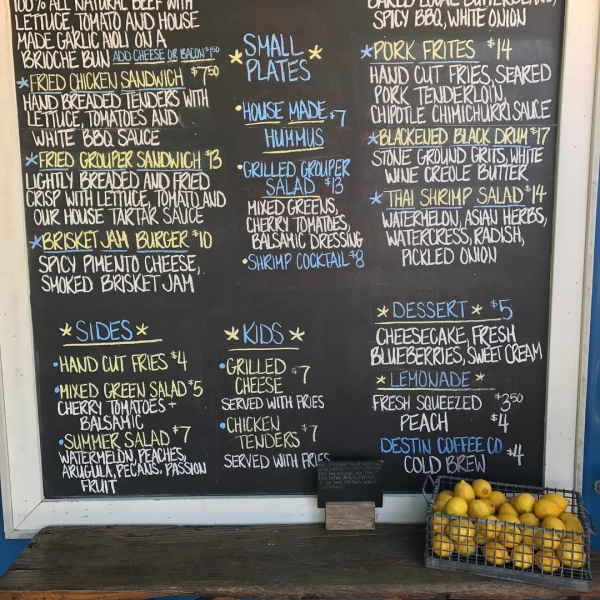 100% ALL NATURAL BEEF WITH
LETTUCE, TOMATO AND HOUSE
MADE GARLIC AIOLI ON A
BRIOCHE BUN ADD CHEESE OR BACON $1.50
*FRIED CHICKEN SANDWICH $7.50
HAND BREADED TENDERS WITH
LETTUCE, TOMATOES AND
WHITE BBQ SAUCE
*FRIED GROUPER SANDWICH $13
LIGHTLY BREADED AND FRIED
CRISP WITH LETTUCE, TOMATO AND
OUR HOUSE TARTAR SAUCE
*BRISKET JAM BURGER $10
SPICY PIMENTO CHEESE,
SMOKED BRISKET JAM
*SIDES*
•HAND CUT FRIES $4
•MIXED GREEN SALAD $5
CHERRY TOMATOES +
BALSAMIC
•SUMMER SALAD $7
WATERMELON, PEACHES,
ARUGULA, PECANS, PASSION
FRUIT
*SMALL*
PLATES
•HOUSE MADE $7
HUMMUS
•GRILLED GROUPER
SALAD $13
MIXED GREENS,
CHERRY TOMATOES,
BALSAMIC DRESSING
•SHRIMP COCKTAIL $8
*KIDS*
•GRILLED $7
CHEESE
SERVED WITH FRIES
•CHICKEN $7
TENDERS
SERVED WITH FRIES
SPICY BBQ, WHITE ONION
*PORK FRITES $14
HAND CUT FRIES, SEARED
PORK TENDERLOIN,
CHIPOTLE CHIMICHURRI SAUCE
*BLACKENED BLACK DRUM $17
STONE GROUND GRITS, WHITE
WINE CREOLE BUTTER
*THAI SHRIMP SALAD $14
WATERMELON, ASIAN HERBS,
WATERCRESS, RADISH,
PICKLED ONION
*DESSERT* $5
CHEESECAKE, FRESH
BLUEBERRIES, SWEET CREAM
*LEMONADE*
FRESH SQUEEZED $3.50
PEACH $4
DESTIN COFFEE CO $4
COLD BREW